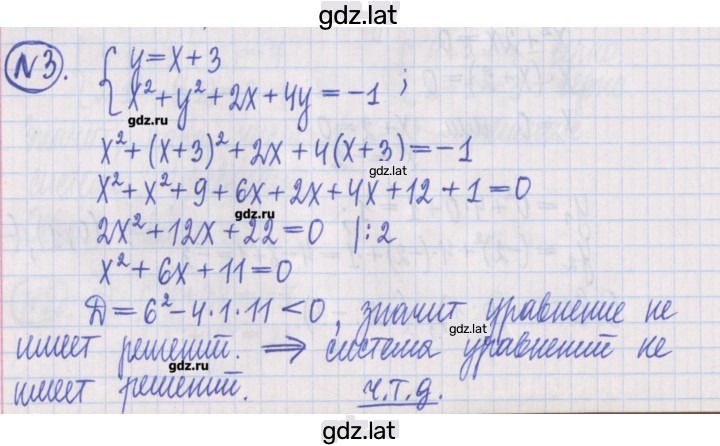 gdz.lat
N3. { y = x + 3
x² + y² + 2x + 4y = -1 ;
gdz.ru
x² + (x+3)² + 2x + 4(x+3) = -1
gdz.ru
x² + x² + 9 + 6x + 2x + 4x + 12 + 1 = 0
gdz.ru
2x² + 12x + 22 = 0 |:2
x² + 6x + 11 = 0
Д = 6² - 4·1·11 < 0, значит уравнение не
gdz.ru
имеет решений. ⇒ система уравнений не
имеет решений. ч.т.д.
gdz.lat